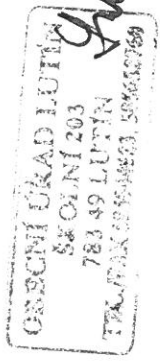 OBECNÍ ÚŘAD LUTÍN
ŠKOLNÍ 203
783 49 LUTÍN
TEL./FAX